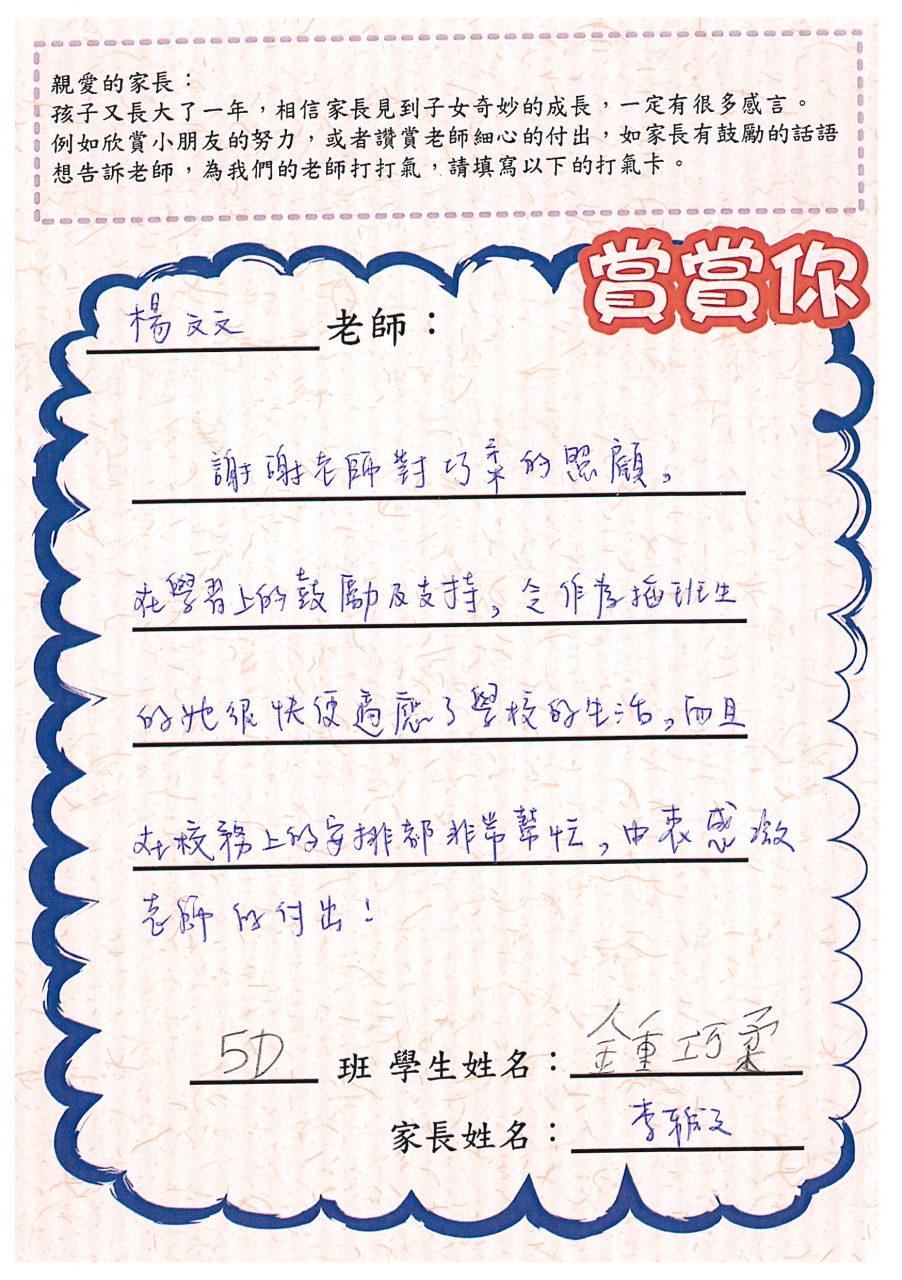 親愛的家長：
孩子又長大了一年，相信家長見到子女奇妙的成長，一定有很多感言。
例如欣賞小朋友的努力，或者讚賞老師細心的付出，如家長有鼓勵的話語
想告訴老師，為我們的老師打打氣，請填寫以下的打氣卡。
賞賞你
楊文文 老師：
謝謝老師對巧柔的照顧。
在學習上的鼓勵及支持，令作為插班生
的她很快便適應了學校的生活，而且
在校務上的安排都非常幫忙，由衷感激
老師的付出！
5D 班 學生姓名：鍾巧柔
家長姓名：李雅文